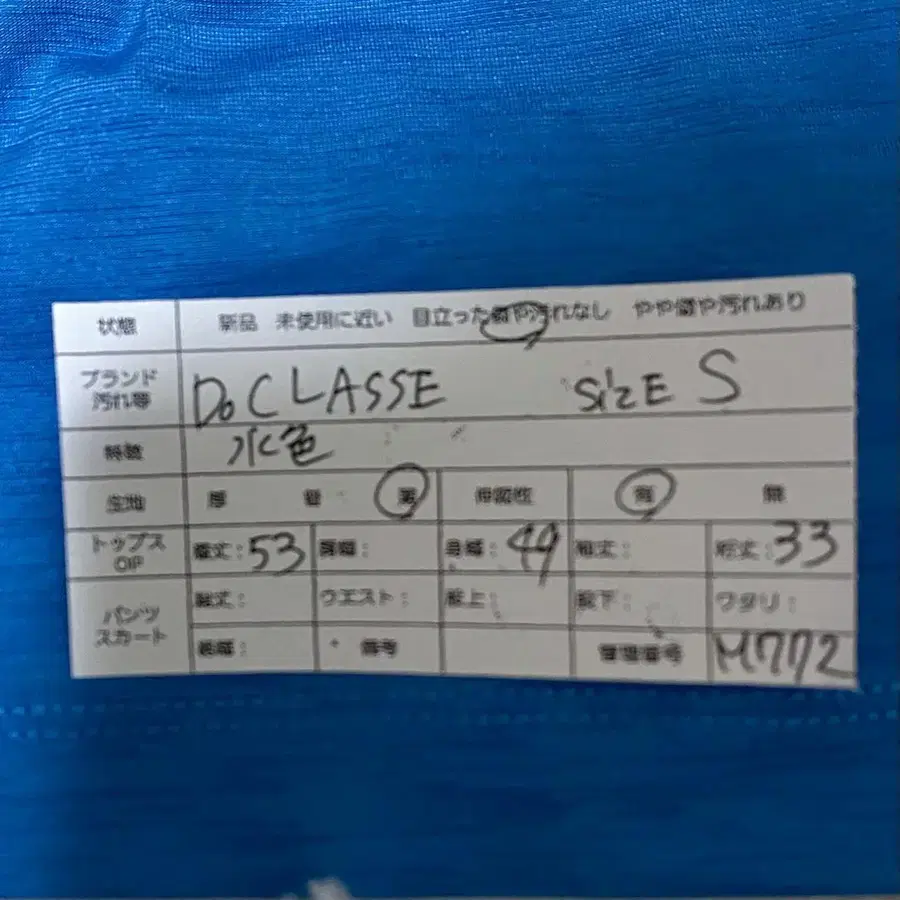 状態 新品 未使用に近い 目立った傷や汚れなし やや傷や汚れあり
ブランド
汚れ等 DoCLASSE SIZE S
特徴 水色
生地 厚 普 薄 伸縮性 有 無
トップス
OP 着丈: 53 肩幅: 身幅: 49 袖丈: 裄丈: 33
パンツ
スカート 総丈: ウエスト: 股上: 股下: ワタリ:
裾幅: 備考 管理番号 M772